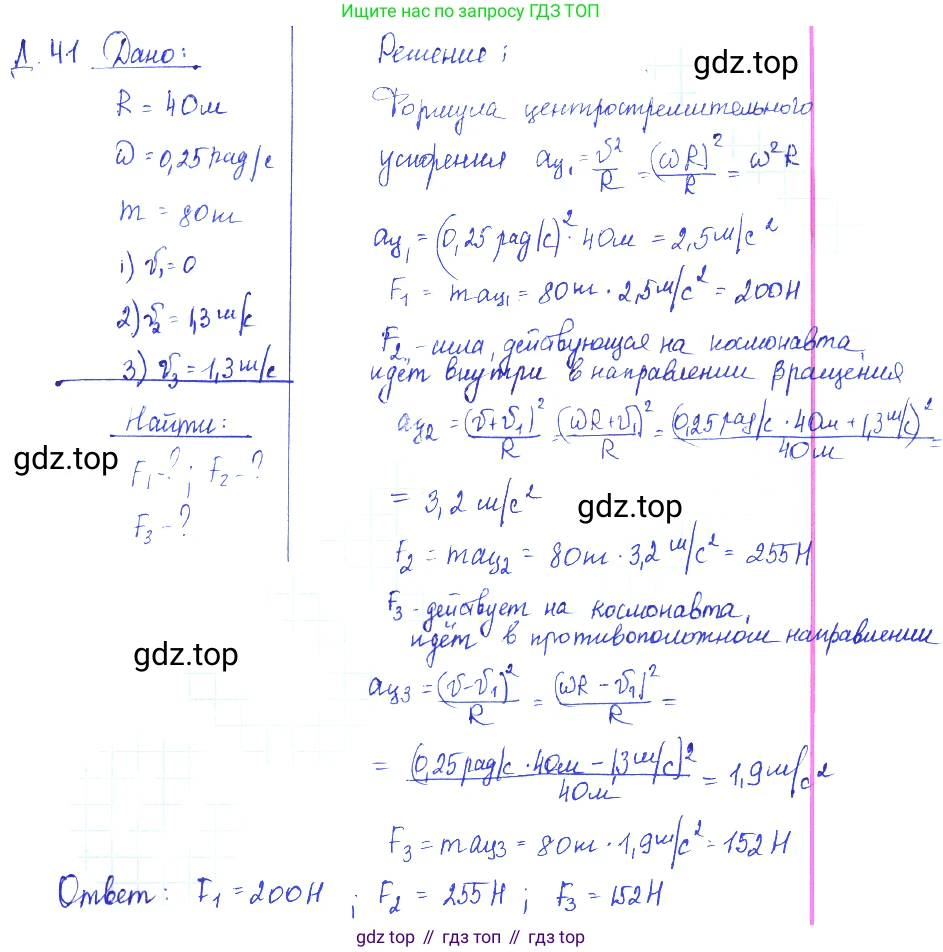 Ищите нас по запросу ГДЗ ТОП
Д. 41 Дано:
R = 40м
ω = 0,25 рад/с
m = 80кг
1) v₁ = 0
2) v₂ = 1,3 м/с
3) v₃ = 1,3 м/с
Найти:
F₁ - ? ; F₂ - ?
F₃ - ?
gdz.top
Решение:
gdz.top
Формула центростремительного
ускорения aц₁ = v²/R = (ωR)²/R = ω²R
aц₁ = (0,25 рад/с)² · 40м = 2,5 м/с²
F₁ = maц₁ = 80кг · 2,5 м/с² = 200Н
F₂ - сила, действующая на космонавта,
идет внутри в направлении вращения
aц₂ = (v+v₁)²/R = (ωR+v₁)²/R = (0,25 рад/с · 40м + 1,3 м/с)²/40м =
= 3,2 м/с²
gdz.top
F₂ = maц₂ = 80кг · 3,2 м/с² = 255Н
F₃ - действует на космонавта,
идёт в противоположном направлении
gdz.top
aц₃ = (v-v₁)²/R = (ωR - v₁)²/R =
= (0,25 рад/с · 40м - 1,3 м/с)²/40м = 1,9 м/с²
F₃ = maц₃ = 80кг · 1,9 м/с² = 152Н
Ответ: F₁ = 200Н ; F₂ = 255Н ; F₃ = 152Н
gdz top // гдз топ // gdz top